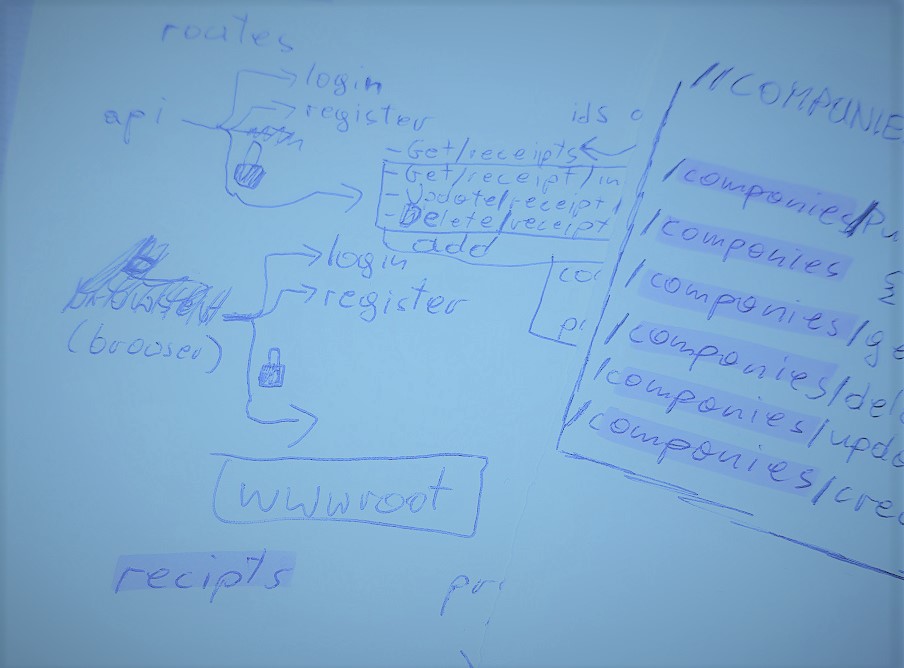 routes
login
api
register
ids
- Get/receipts
- Get/receipt/in
- Update/receipt/
- Delete/receipt
add
login
register
(brooser)
wwwroot
recipts
//COMPANIE
/companies/
/companies
/companies/ge
/companies/del
/companies/upda
/companies/crea